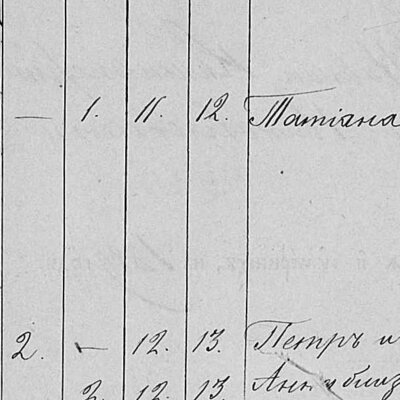 — 1. 11. 12. Татіана
2. — 12. 13. Петръ и
2. 12. 13. Анн